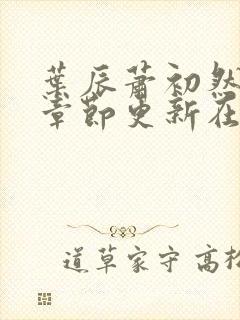 葉辰蕭初然
章節更新在
道草家守 高松